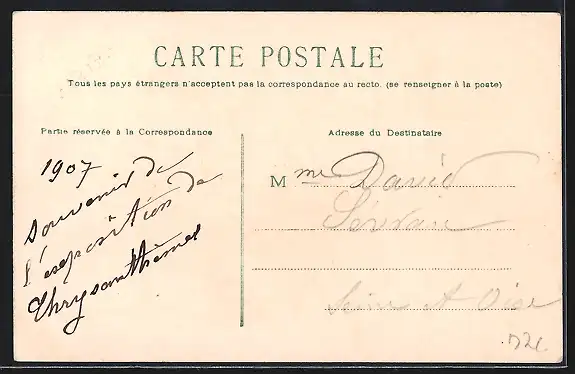 CARTE POSTALE
Tous les pays étrangers n'acceptent pas la correspondance au recto. (se renseigner à la poste)
Partie réservée à la Correspondance
1907
Souvenir de
l'exeposition de
Chrysanthèmes
Adresse du Destinataire
Mme David
Sevran
Seine et Oise